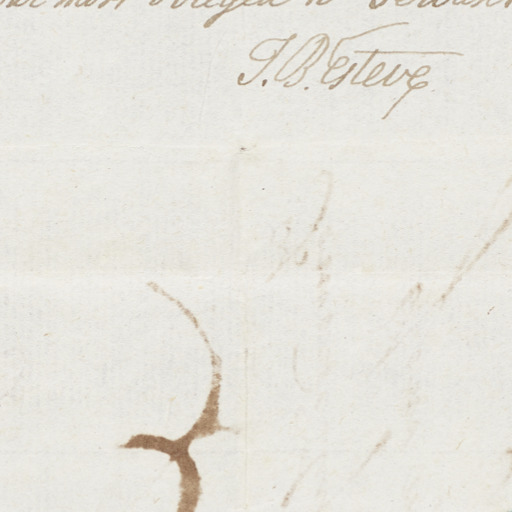 most obliged & Servant
J. B. Esteve